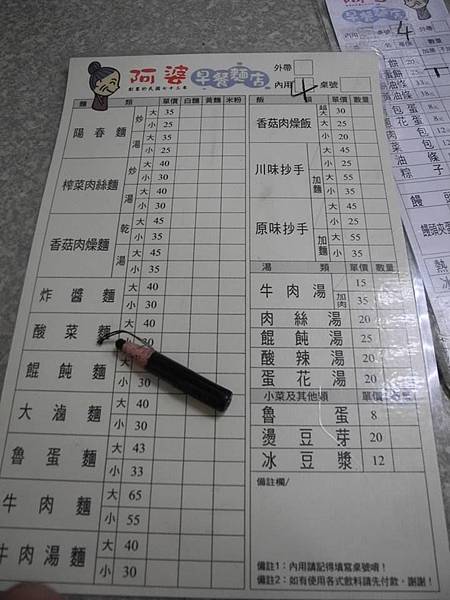 阿婆早餐麵店
創業於民國七十二年
外帶
內用 4 桌號
麵 類 單價 白麵 黃麵 米粉
陽春麵 炒 大 35
小 25
湯 大 35
小 25
榨菜肉絲麵 炒 大 40
小 30
湯 大 40
小 30
香菇肉燥麵 乾 大 45
小 35
湯 大 45
小 35
炸醬麵 大 40
小 30
酸菜麵 大 40
小 30
餛飩麵 大
小 30
大滷麵 大 40
小 30
魯蛋麵 大 43
小 33
牛肉麵 大 65
小 55
牛肉湯麵 大 40
小 30
飯 類 單價 數量
香菇肉燥飯 大 30
小 25
川味抄手 大 45
小 35
加麵 大 55
小 45
原味抄手 大 45
小 35
加麵 大 55
小 45
湯 類 單價 數量
牛肉湯 15
加肉 35
肉絲湯 20
餛飩湯 25
酸辣湯 20
蛋花湯 20
小菜及其他類 單價
魯蛋 8
燙豆芽 20
冰豆漿 12
備註欄/
備註1：內用請記得填寫桌號唷！
備註2：如有使用各式飲料請先付款，謝謝！